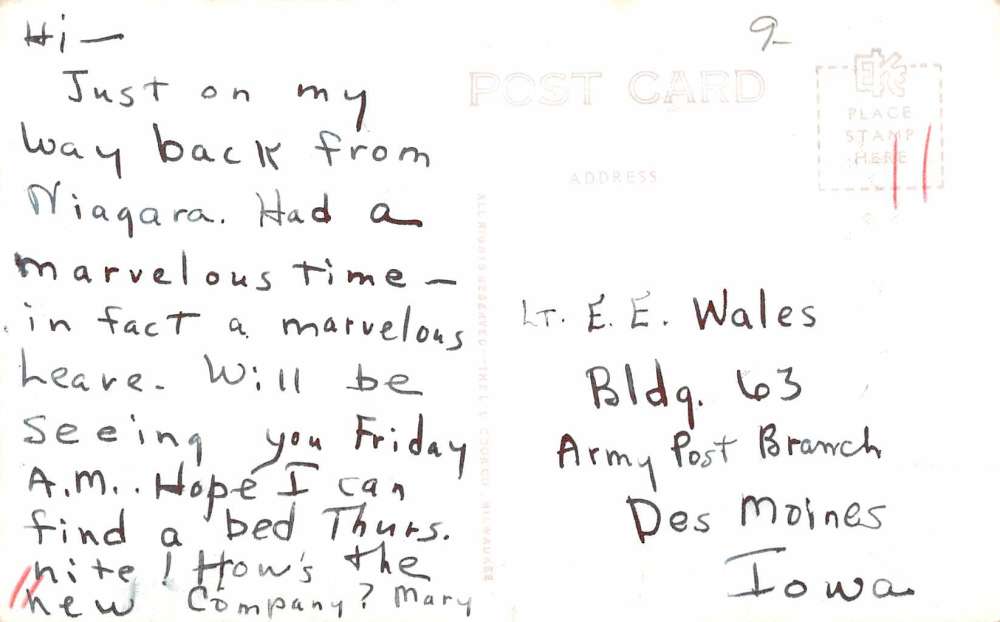 Hi —
Just on my
way back from
Niagara. Had a
marvelous time —
in fact a marvelous
leave. Will be
seeing you Friday
A.M.. Hope I can
find a bed Thurs.
nite! How's the
new Company? Mary
9-
POST CARD
EKC
PLACE
STAMP
HERE
11
ADDRESS
Lt. E. E. Wales
Bldg. 63
Army Post Branch
Des Moines
Iowa